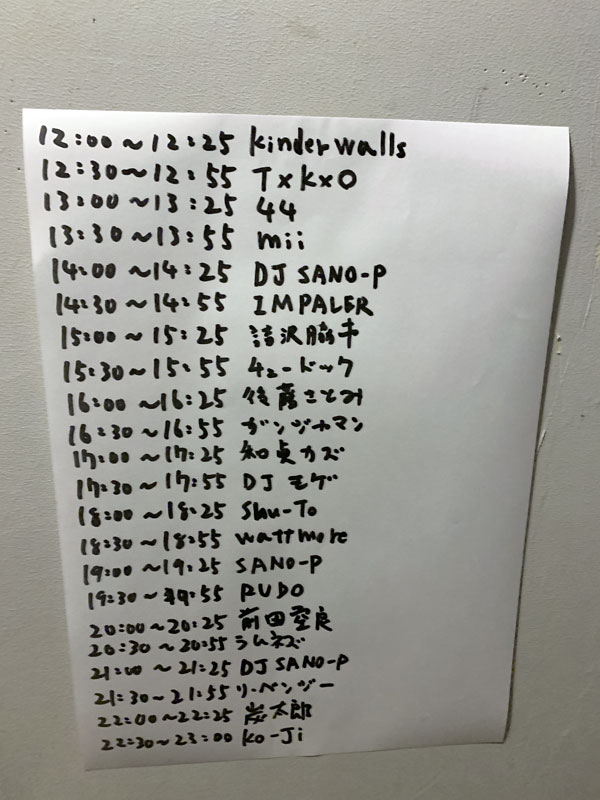 12:00~12:25 kinderwalls
12:30~12:55 TxKxO
13:00~13:25 44
13:30~13:55 mii
14:00~14:25 DJ SANO-P
14:30~14:55 IMPALER
15:00~15:25
15:30~15:55 チュードック
16:00~16:25 後藤さとみ
16:30~16:55 ガンジャマン
17:00~17:25 知貞カズ
17:30~17:55 DJ モゲ
18:00~18:25 Shu-To
18:30~18:55 wattmore
19:00~19:25 SANO-P
19:30~19:55 PUDO
20:00~20:25 前田空良
20:30~20:55 ラムネズ
21:00~21:25 DJ SANO-P
21:30~21:55 リーベンジー
22:00~22:25 炭太郎
22:30~23:00 Ko-Ji